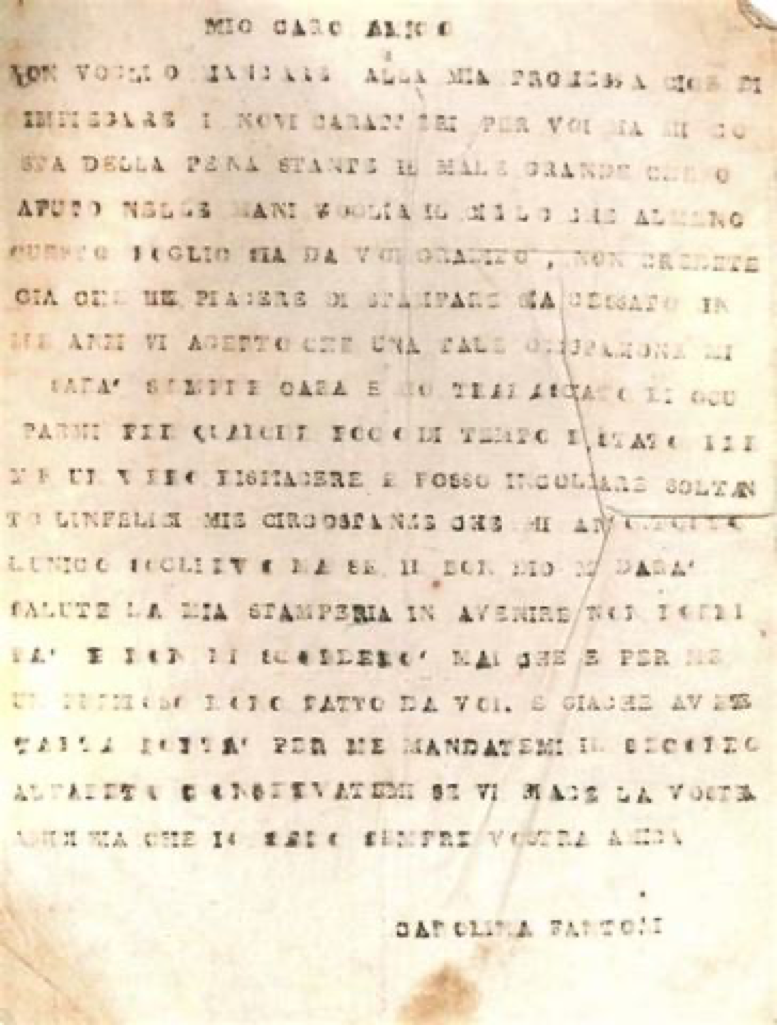 MIO CARO AMICO
NON VOGLIO MANCARE ALLA MIA PROMESSA CIOE DI
IMPIEGARE I NOVI CARATTERI PER VOI MA MI CO
STA DELLA PENA STANTE IL MALE GRANDE CHE O
AVUTO NELLE MANI VOGLIA IL CIELO CHE ALMENO
QUESTO FOGLIO SIA DA VOI GRADITO, NON CREDETE
GIA CHE IL PIACERE DI STAMPARE SIA CESSATO IN
ME ANZI VI ACERTO CHE UNA TALE MI
SARA' SEMPRE CARA E SO TRALASCIATO DI OCU
PARMI PER QUALCHE POCO DI TEMPO E STATO PER
ME UN VERO DISPIACERE E POSSO INCOLPARE SOLTAN
TO LINFELICI MIE CIRCOSTANZE CHE MI
LUNICO SOGLIEVO MA SE IL BON DIO MI DARA'
SALUTE LA MIA STAMPERIA IN AVENIRE NON
RA' E NON MI SCORDERO' MAI CHE E PER ME
UN PREZIOSO DONO FATTO DA VOI. E GIACHE AVETE
TANTA BONTA' PER ME MANDATEMI IL SECONDO
ALFABETO CONSERVATEMI SE VI PIACE LA VOSTRA
AMICIZIA CHE IO SARO SEMPRE VOSTRA AMICA
CAROLINA FANTONI